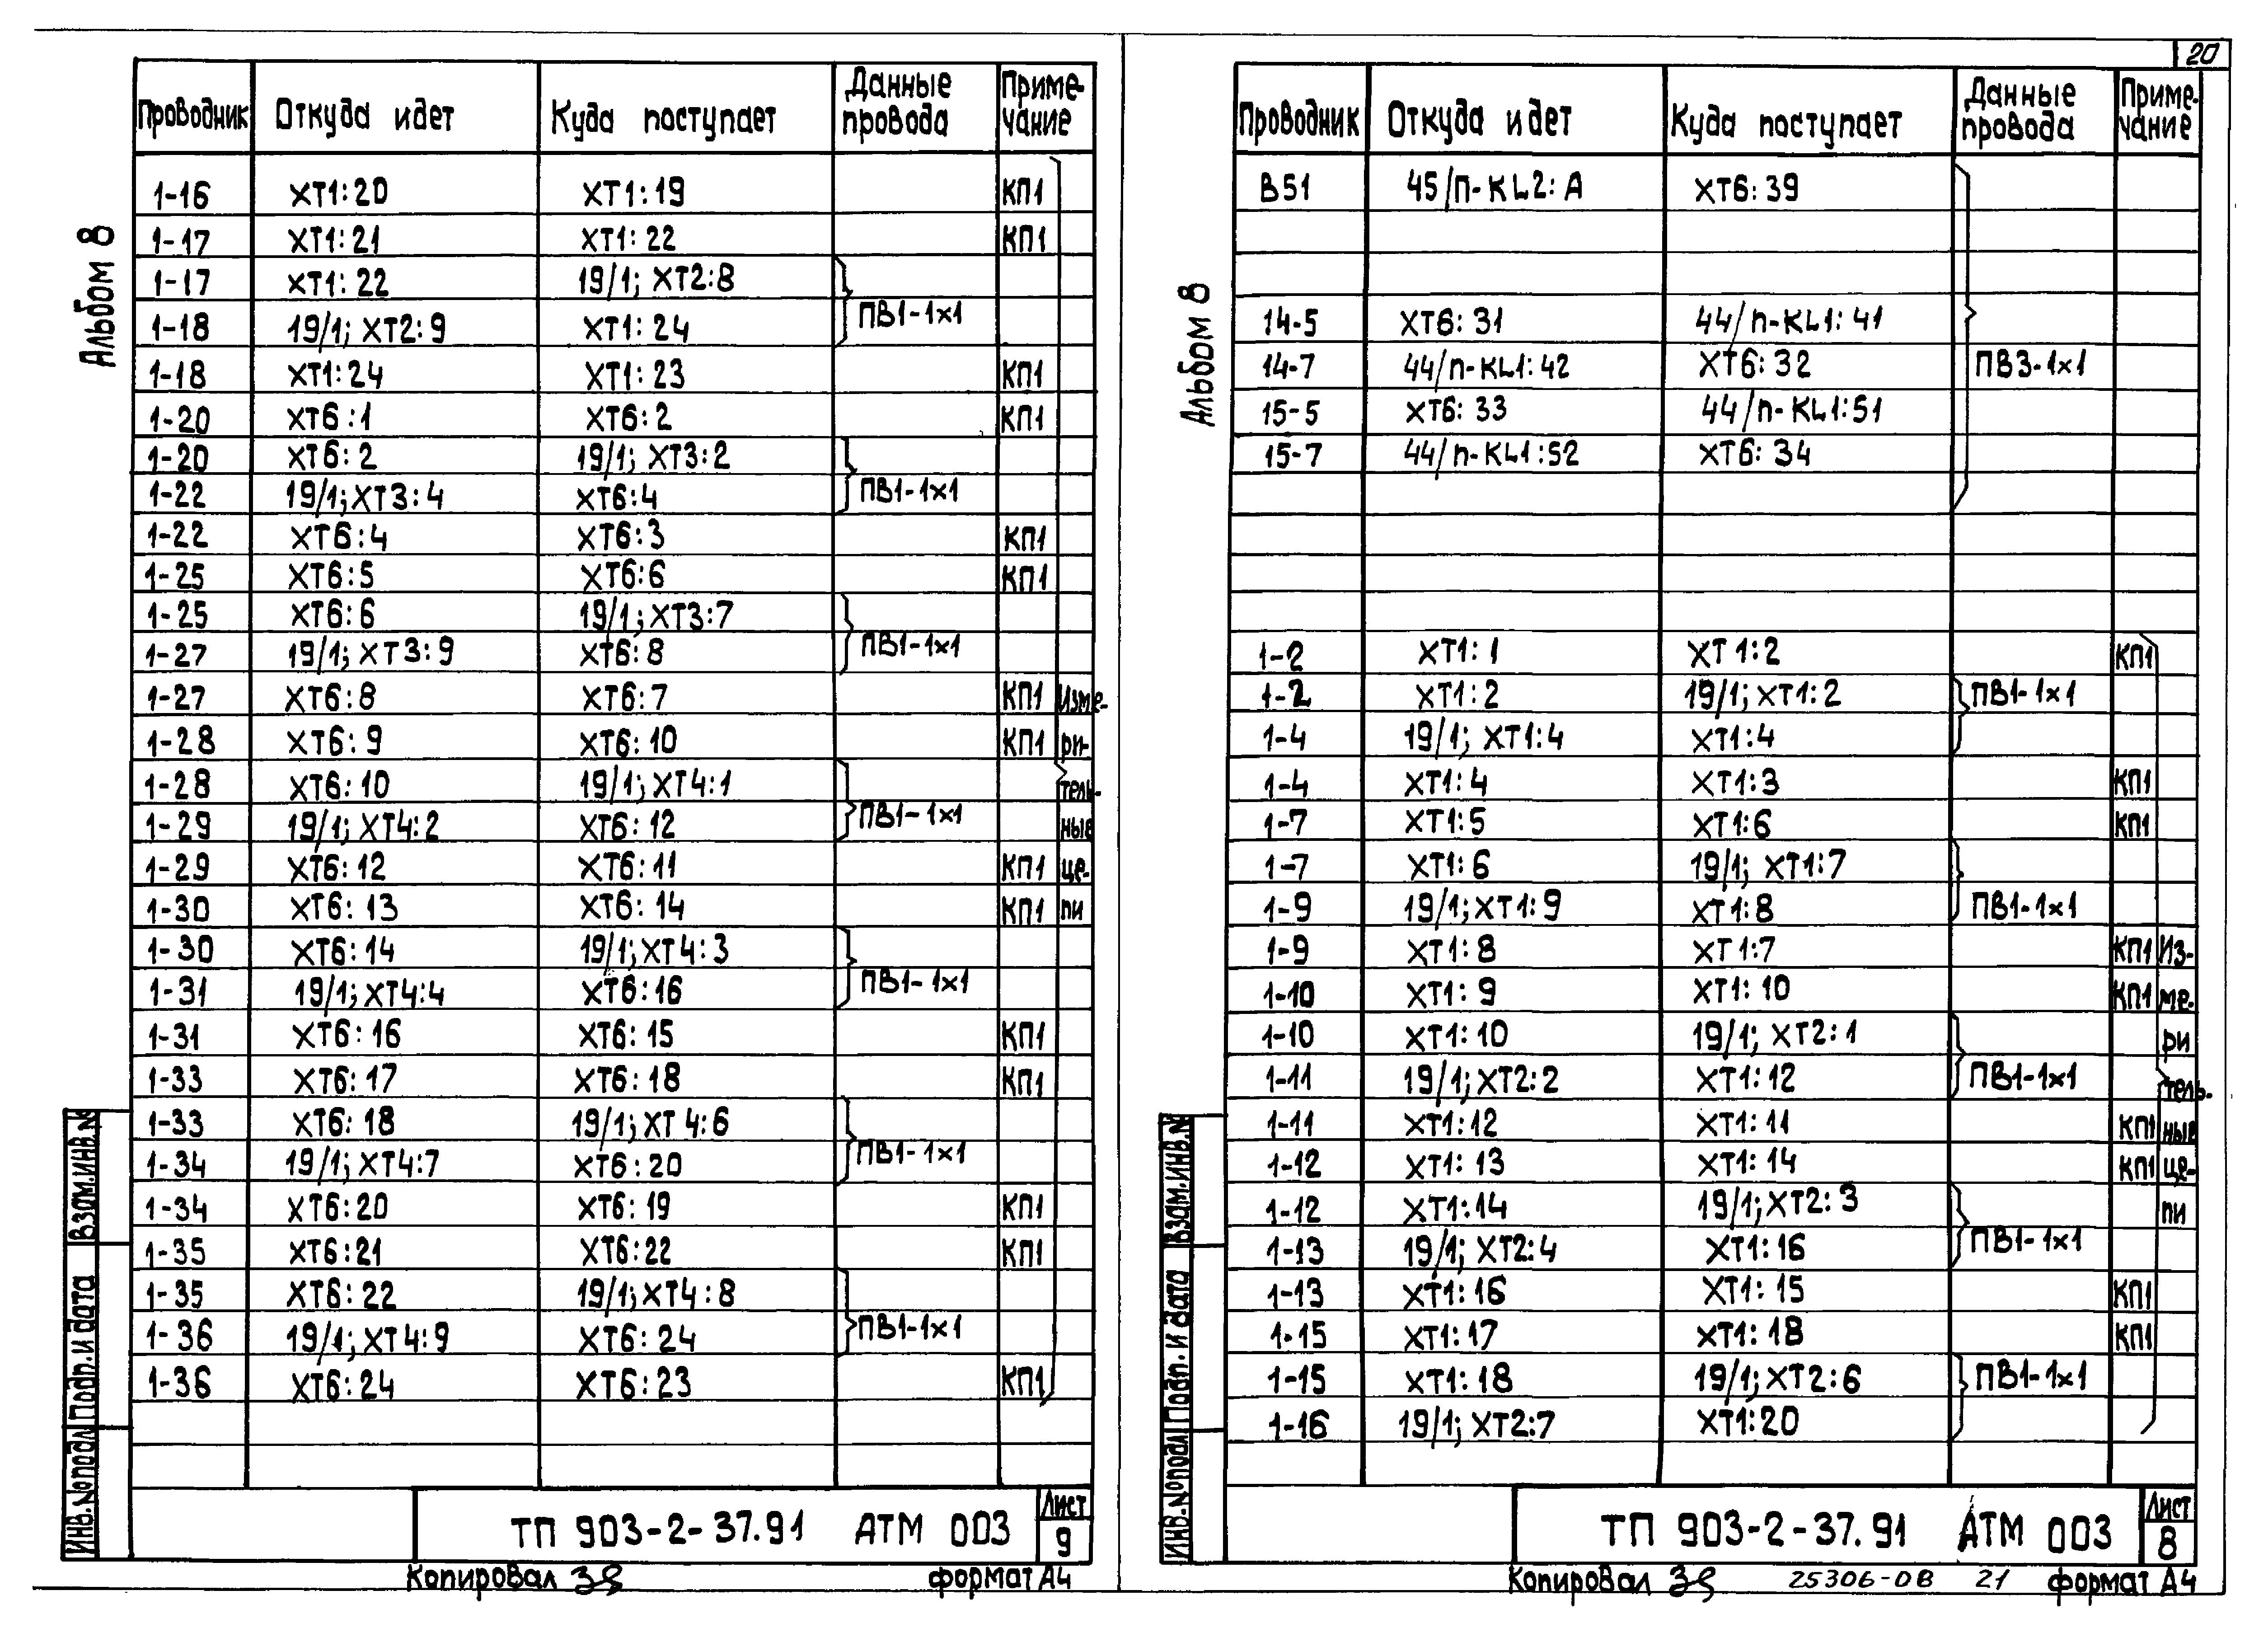 20
Альбом 8
Проводник Откуда идет Куда поступает Данные провода Приме-чание
1-16 XT1:20 XT1:19 КП1
1-17 XT1:21 XT1:22 КП1
1-17 XT1:22 19/1; XT2:8
ПВ1-1х1
1-18 19/1; XT2:9 XT1:24
1-18 XT1:24 XT1:23 КП1
1-20 XT6:1 XT6:2 КП1
1-20 XT6:2 19/1; XT3:2
1-22 19/1; XT3:4 XT6:4 ПВ1-1х1
1-22 XT6:4 XT6:3 КП1
1-25 XT6:5 XT6:6 КП1
1-25 XT6:6 19/1; XT3:7
1-27 19/1; XT3:9 XT6:8 ПВ1-1х1
1-27 XT6:8 XT6:7 КП1 Изме-
1-28 XT6:9 XT6:10 КП1 ри-
1-28 XT6:10 19/1; XT4:1 тель-
1-29 19/1; XT4:2 XT6:12 ПВ1-1х1 ные
1-29 XT6:12 XT6:11 КП1 це-
1-30 XT6:13 XT6:14 КП1 пи
1-30 XT6:14 19/1; XT4:3
1-31 19/1; XT4:4 XT6:16 ПВ1-1х1
1-31 XT6:16 XT6:15 КП1
1-33 XT6:17 XT6:18 КП1
1-33 XT6:18 19/1; XT4:6
1-34 19/1; XT4:7 XT6:20 ПВ1-1х1
1-34 XT6:20 XT6:19 КП1
1-35 XT6:21 XT6:22 КП1
1-35 XT6:22 19/1; XT4:8
1-36 19/1; XT4:9 XT6:24 ПВ1-1х1
1-36 XT6:24 XT6:23 КП1
Взам.инв.№
Подп. и дата
Инв.№подл
ТП 903-2-37.91 АТМ 003
Лист
9
Копировал формат А4
Альбом 8
Проводник Откуда идет Куда поступает Данные провода Приме-чание
B51 45/п-KL2:A XT6:39
14-5 XT6:31 44/п-KL1:41
14-7 44/п-KL1:42 XT6:32 ПВ3-1х1
15-5 XT6:33 44/п-KL1:51
15-7 44/п-KL1:52 XT6:34
1-2 XT1:1 XT1:2 КП1
1-2 XT1:2 19/1; XT1:2 ПВ1-1х1
1-4 19/1; XT1:4 XT1:4
1-4 XT1:4 XT1:3 КП1
1-7 XT1:5 XT1:6 КП1
1-7 XT1:6 19/1; XT1:7
1-9 19/1; XT1:9 XT1:8 ПВ1-1х1
1-9 XT1:8 XT1:7 КП1 Из-
1-10 XT1:9 XT1:10 КП1 ме-
1-10 XT1:10 19/1; XT2:1 ри
1-11 19/1; XT2:2 XT1:12 ПВ1-1х1 тель-
1-11 XT1:12 XT1:11 КП1 ные
1-12 XT1:13 XT1:14 КП1 це-
1-12 XT1:14 19/1; XT2:3 пи
1-13 19/1; XT2:4 XT1:16 ПВ1-1х1
1-13 XT1:16 XT1:15 КП1
1-15 XT1:17 XT1:18 КП1
1-15 XT1:18 19/1; XT2:6 ПВ1-1х1
1-16 19/1; XT2:7 XT1:20
Взам.инв.№
Подп. и дата
Инв.№подл
ТП 903-2-37.91 АТМ 003
Лист
8
Копировал 25306-08 21 формат А4